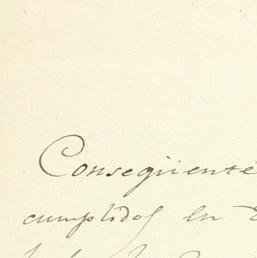 Conseqüente
cumplidos en